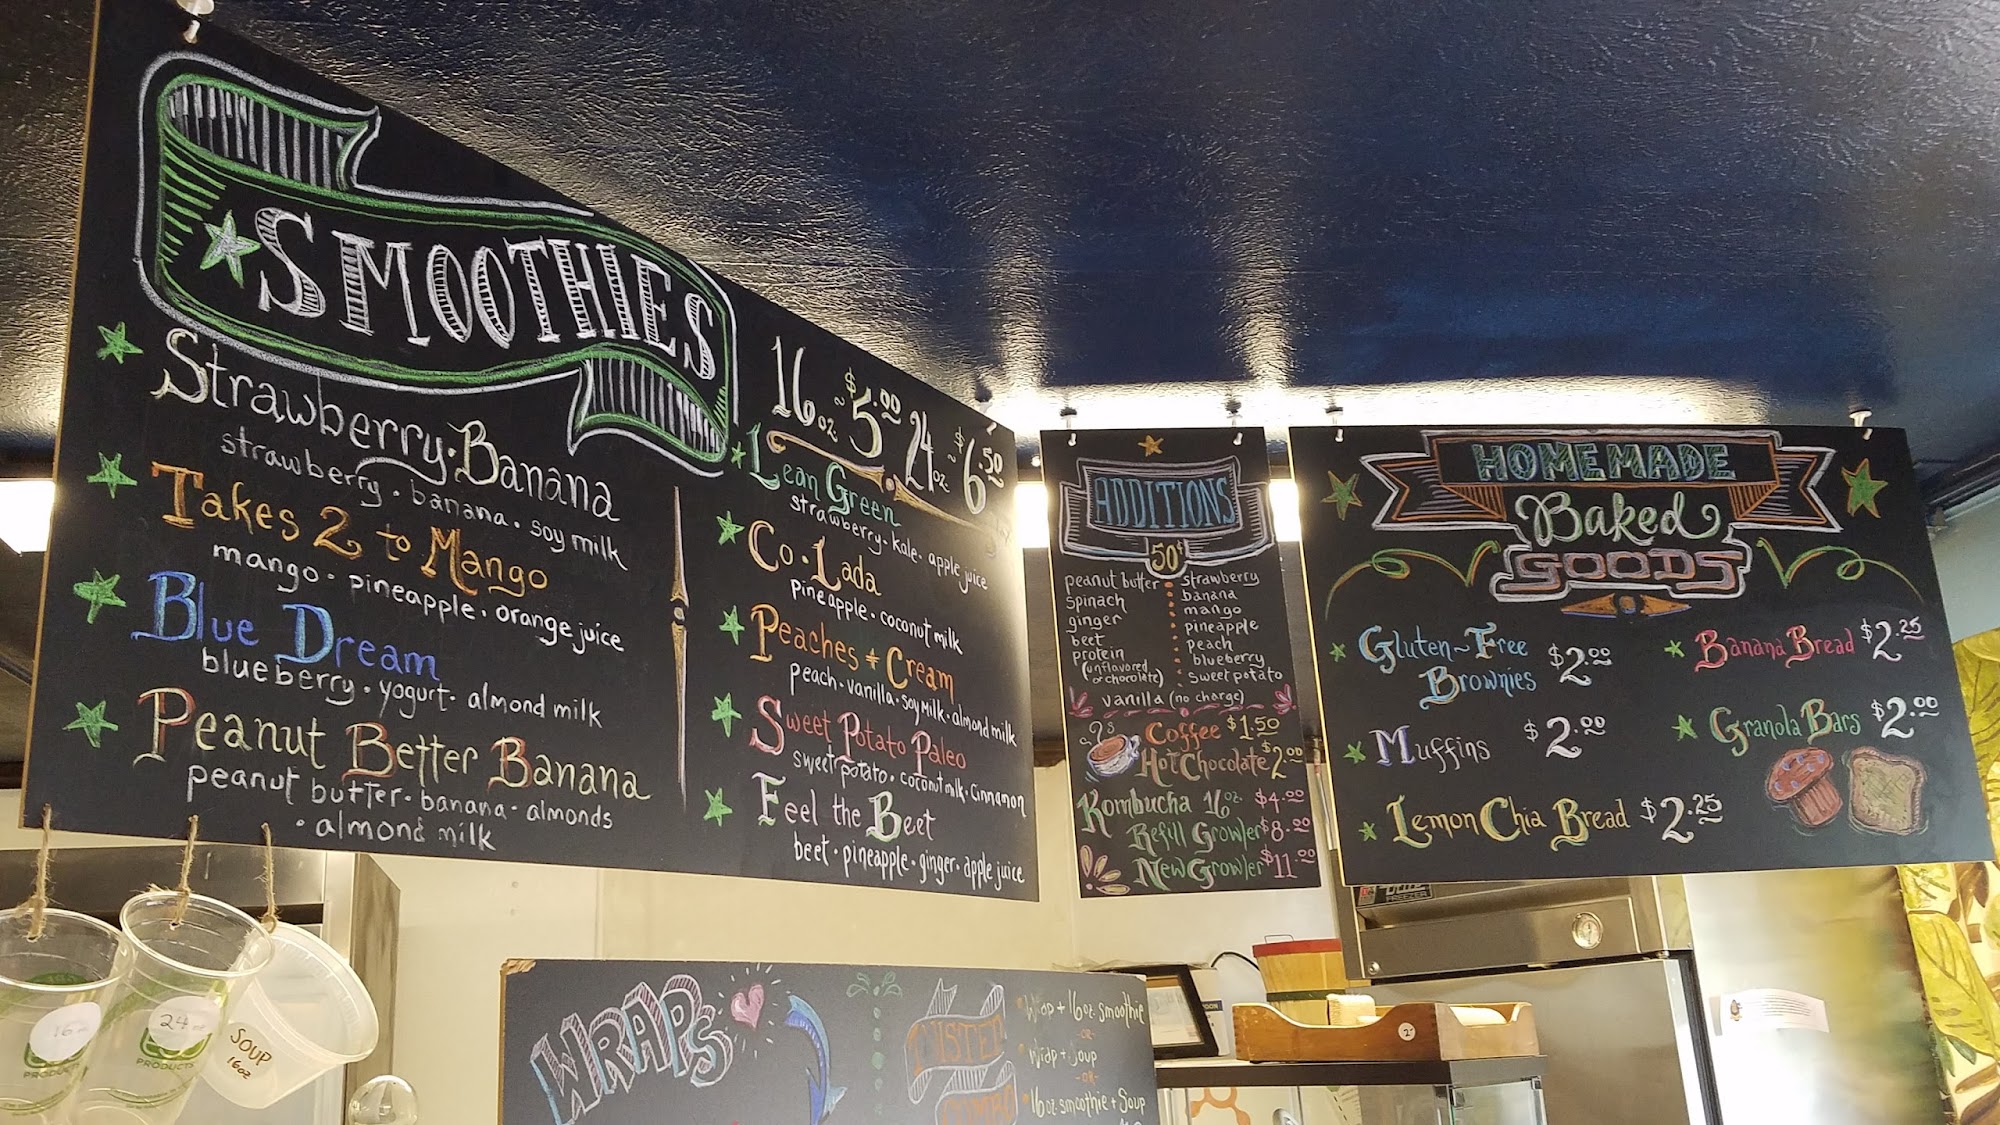 SMOOTHIES
16 oz ~ $5.00 24 oz ~ $6.50
Strawberry·Banana
strawberry · banana · soy milk
Takes 2 to Mango
mango · pineapple · orange juice
Blue Dream
blueberry · yogurt · almond milk
Peanut Better Banana
peanut butter · banana · almonds
· almond milk
Lean Green
strawberry · kale · apple juice
Co·Lada
pineapple · coconut milk
Peaches + Cream
peach · vanilla · soy milk · almond milk
Sweet Potato Paleo
sweet potato · coconut milk · cinnamon
Feel the Beet
beet · pineapple · ginger · apple juice
ADDITIONS
50¢
peanut butter
spinach
ginger
beet
protein
(unflavored
or chocolate)
strawberry
banana
mango
pineapple
peach
blueberry
sweet potato
vanilla (no charge)
Coffee $1.50
Hot Chocolate $2.00
Kombucha 16 oz. $4.00
Refill Growler $8.00
New Growler $11.00
HOMEMADE
Baked
GOODS
Gluten~Free
Brownies $2.00
Muffins $2.00
Lemon Chia Bread $2.25
Banana Bread $2.25
Granola Bars $2.00
WRAPS
TWISTER
COMBO
Wrap + 16 oz. smoothie
-OR-
Wrap + Soup
-OR-
16 oz smoothie + Soup
16 oz
24 oz
PRODUCTS
SOUP
16oz
FREEZER